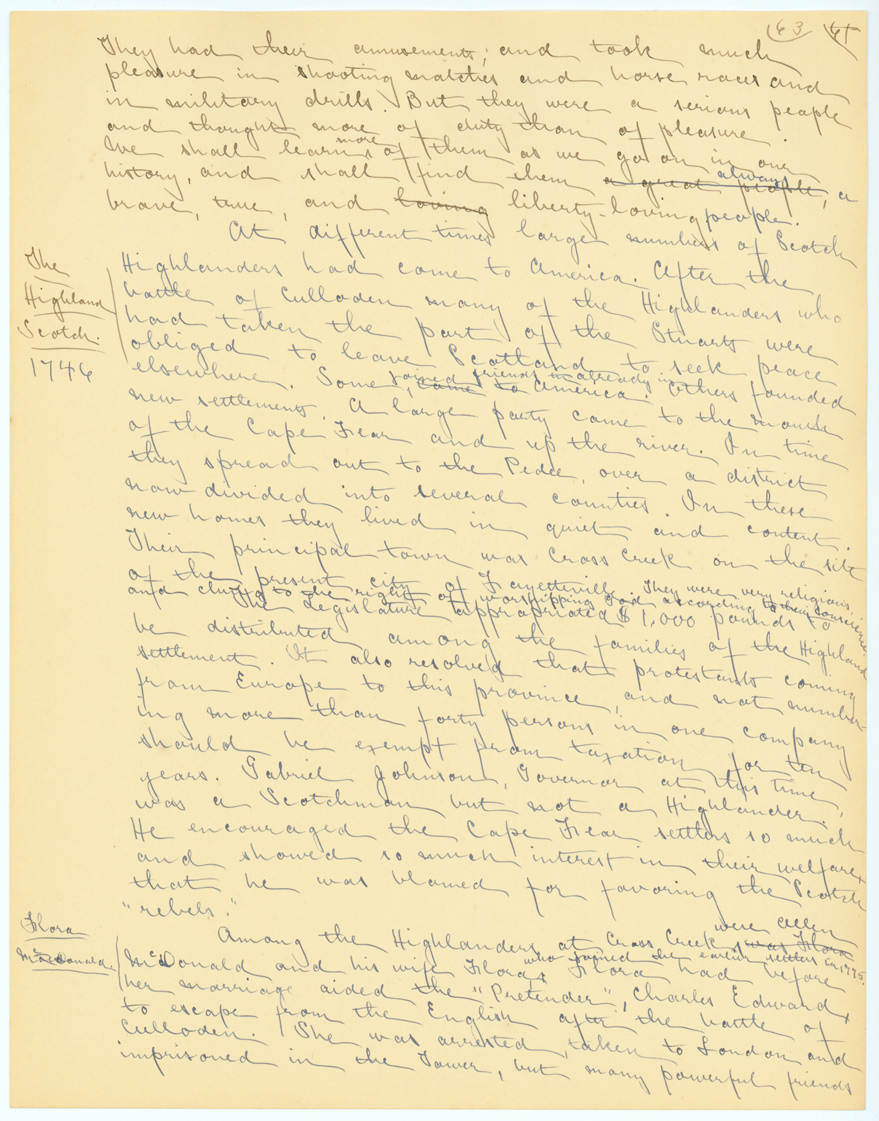 63
They had their amusements, and took much
pleasure in shooting matches and horse races and
in military drills. But they were a serious people
and thought more of duty than of pleasure.
We shall learn more of them as we go on in our
history, and shall find them a great people, always a
brave, true, and loving liberty-loving people.
At different times large numbers of Scotch
The
Highland
Scotch.
1746
Highlanders had come to America. After the
battle of Culloden many of the Highlanders who
had taken the part of the Stuarts were
obliged to leave Scotland to seek peace
elsewhere. Some, came to joined friends already in America. Others founded
new settlements. A large party came to the mouth
of the Cape Fear and up the river. In time
they spread out to the Pedee, over a district
now divided into several counties. In these
new homes they lived in quiet and content.
Their principal town was Cross Creek on the site
of the present city of Fayetteville. They were very religious,
and clung to the right of worshipping God according to their conscience.
The Legislature appropriated $1,000 pounds to
be distributed among the families of the Highland
settlement. It also resolved that protestants coming
from Europe to this province, and not number-
ing more than forty persons in one company
should be exempt from taxation for ten
years. Gabriel Johnson, Governor at this time,
was a Scotchman but not a Highlander.
He encouraged the Cape Fear settlers so much
and showed so much interest in their welfare
that he was blamed for favoring the Scotch
"rebels."
Flora
McDonald
Among the Highlanders at Cross Creek, was Flora were Allen
McDonald and his wife Flora, who joined the earlier settlers in 1775. Flora had before
her marriage aided the "Pretender", Charles Edward,
to escape from the English after the battle of
Culloden. She was arrested, taken to London and
imprisoned in the Tower, but many powerful friends